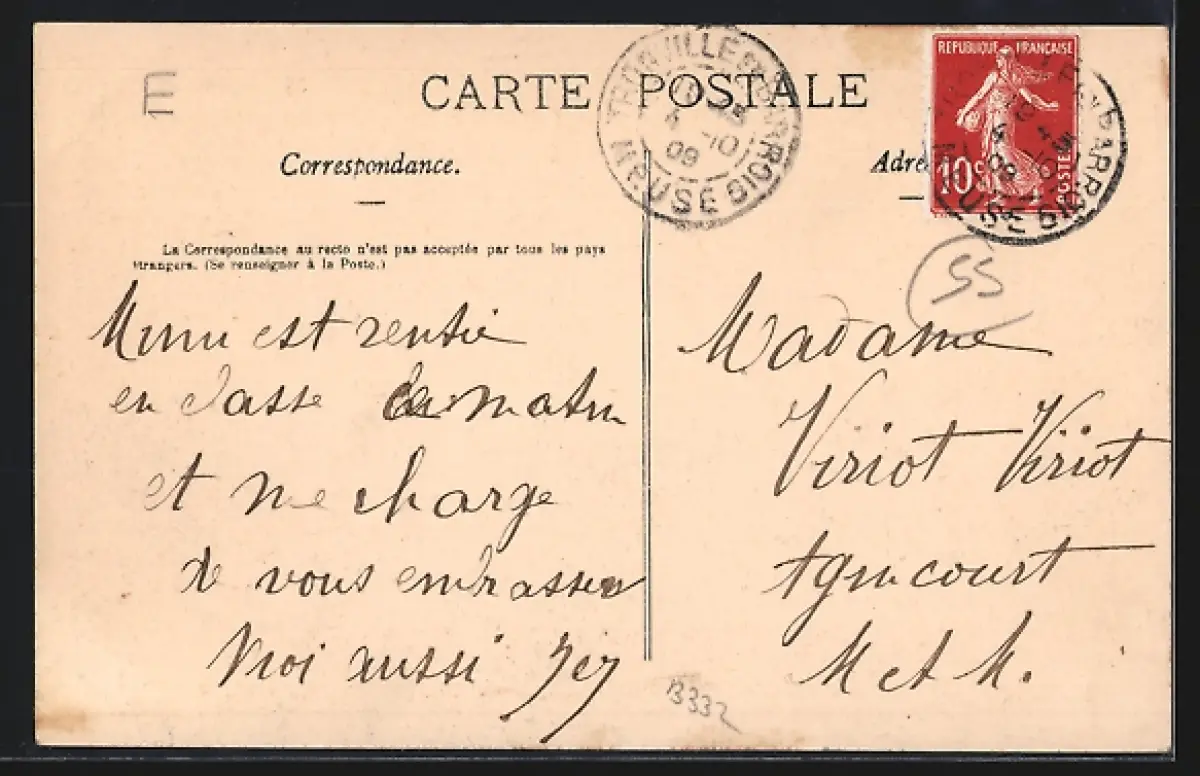 E
CARTE POSTALE
TRONVILLE EN BARROIS
4 -10
09
MEUSE
REPUBLIQUE FRANÇAISE
10c
POSTES
Correspondance.
Adre
La Correspondance au recto n'est pas acceptée par tous les pays
étrangers. (Se renseigner à la Poste.)
55
est rentré
en classe ce matin
et me charge
de vous embrasser
Moi aussi
Madame
Viriot Viriot
Agincourt
M et M.
B332